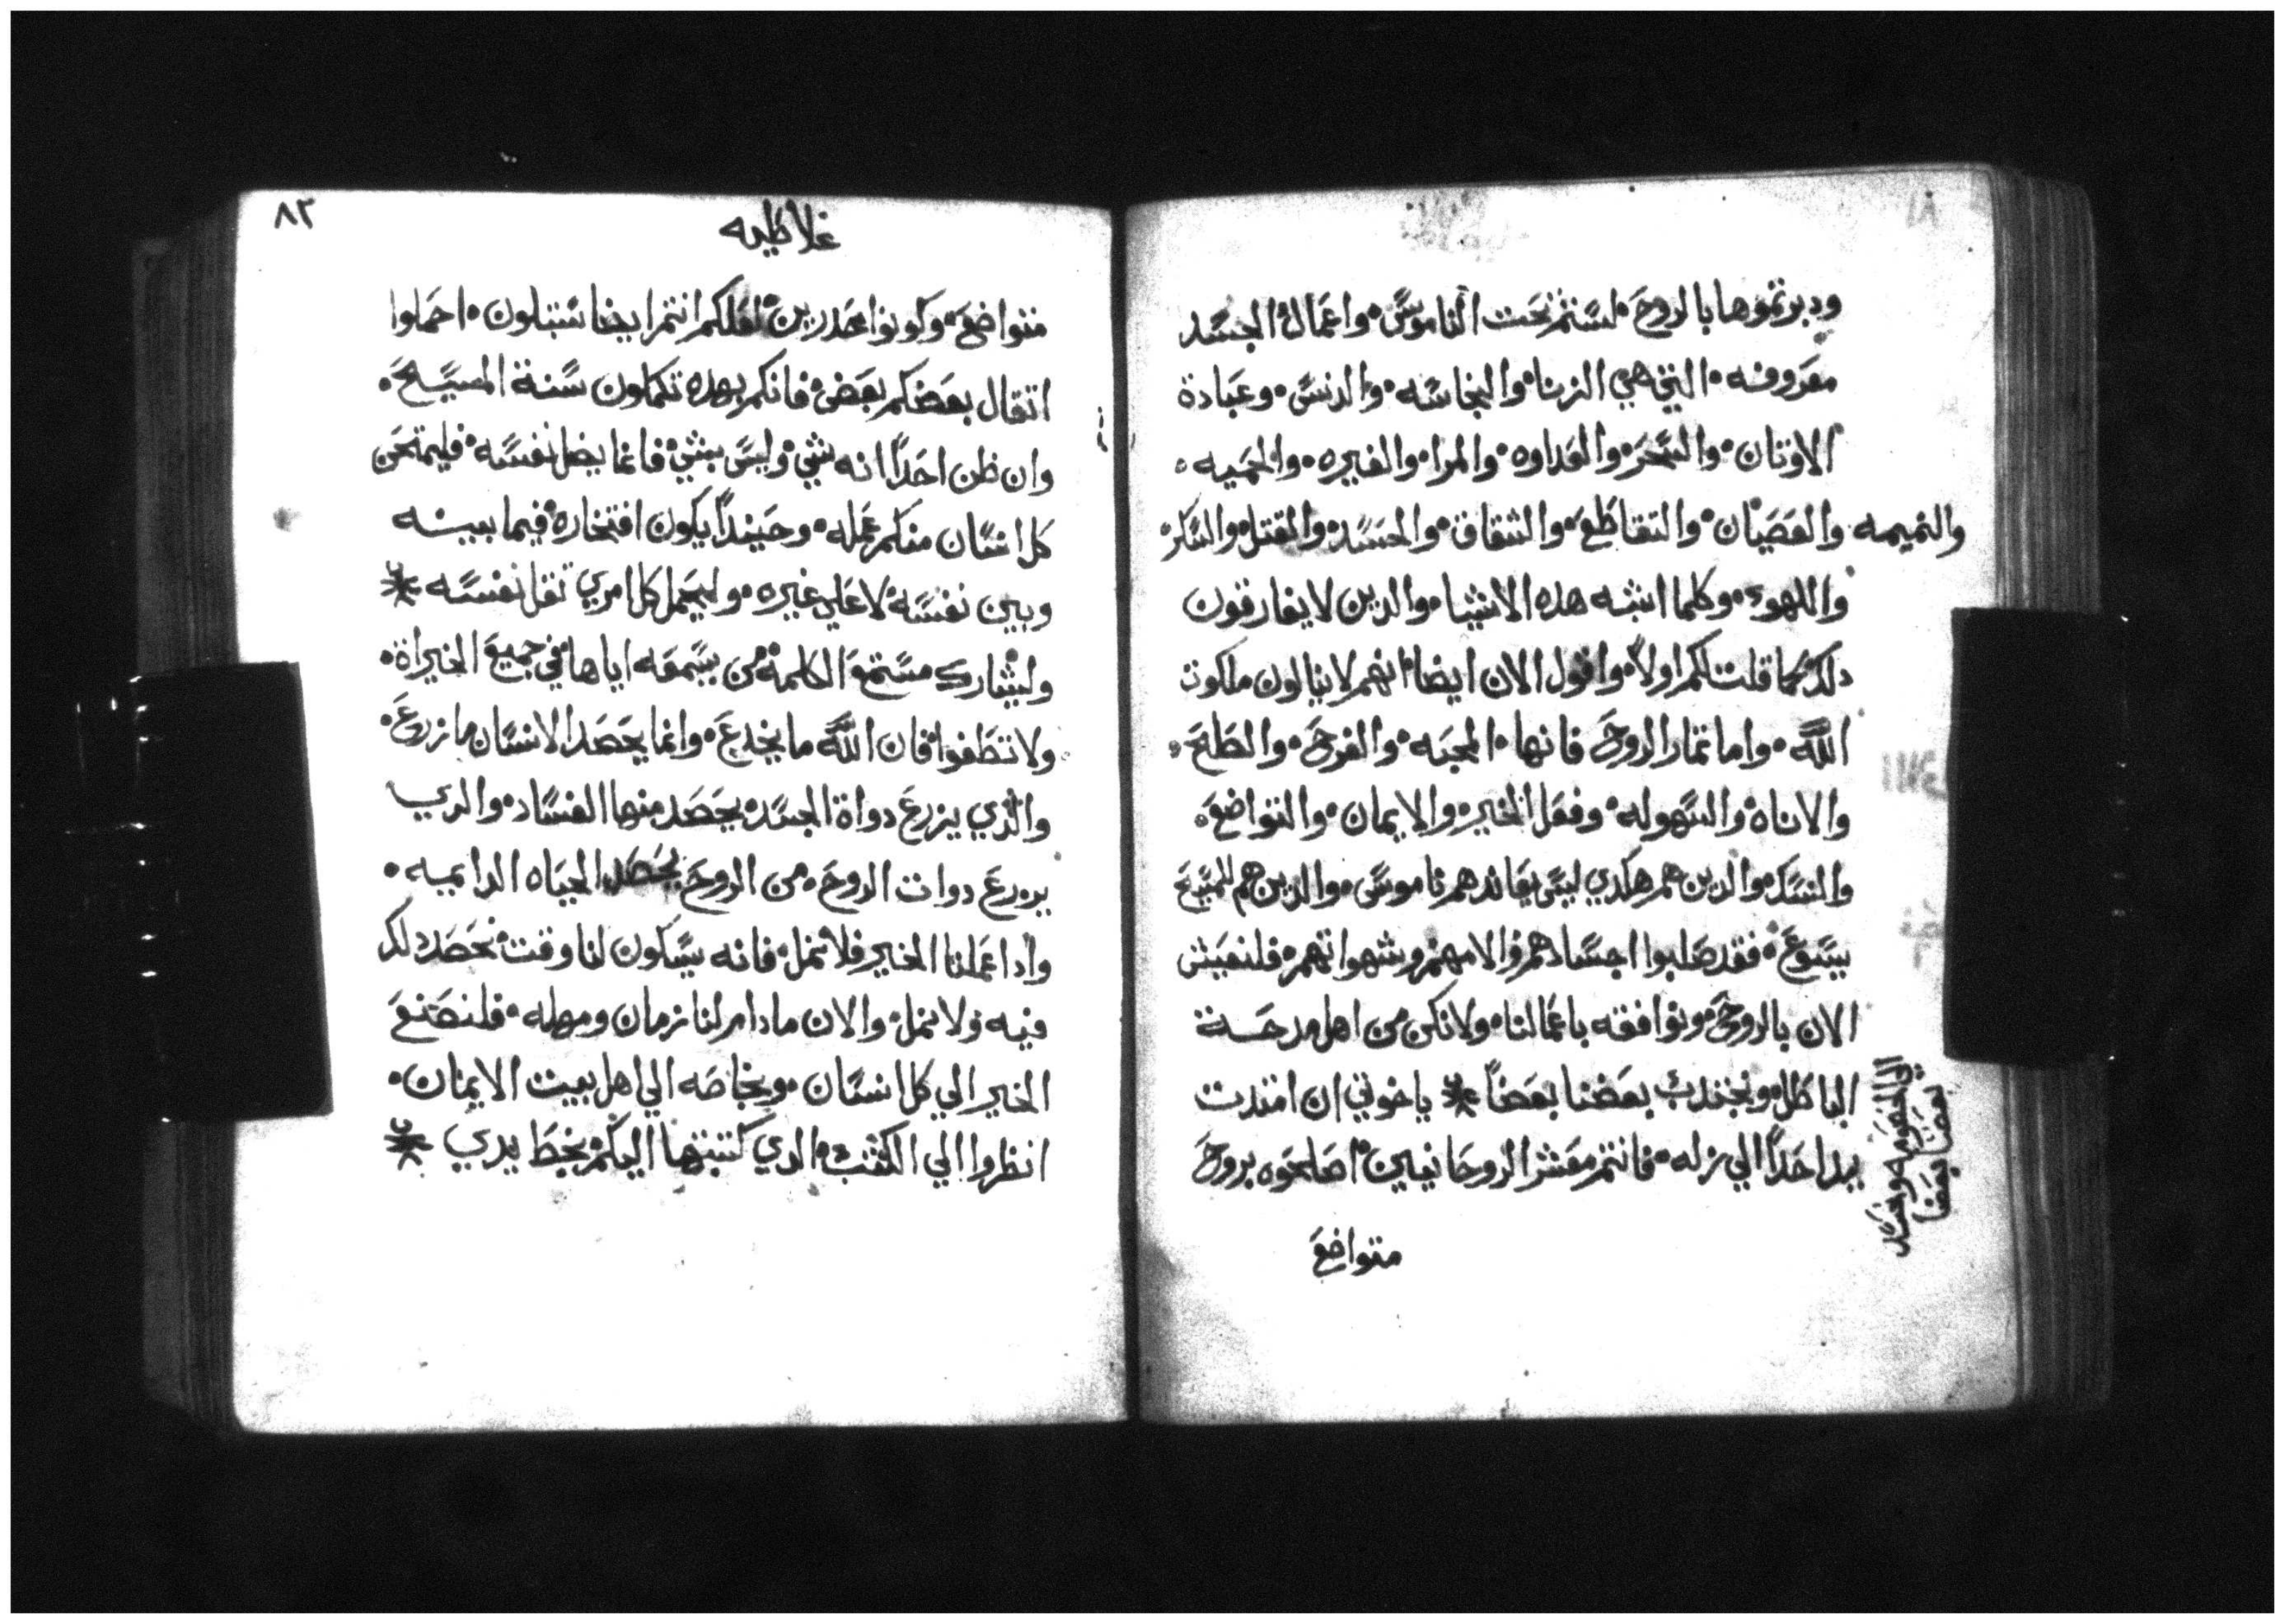 ودبرتموها بالروح۰ لستم تحت الناموس۰ واعمال الجسد
معروفه۰ التي هي الزنا۰ والنجاسه۰ والدنس۰ وعبادة
الاوتان۰ والسحر۰ والعداوه۰ والمرا۰ والغيره۰ والحميه۰
والنميمه والعصيان۰ والتقاطع۰ والشقاق۰ والحسد۰ والقتل۰ والسكر۰
واللهو۰ وكلما اشبه هده الاشيا۰ والدين لا يفارقون
دلك۰ كما قلت لكم اولاً۰ واقول الان ايضا۰ انهم لا ينالون ملكوت
الله۰ واما تمار الروح فانها۰ المحبه۰ والفرح۰ والصلح۰
والاناه۰ والسهوله۰ وفعل الخير۰ والايمان۰ والتواضع۰
والنسك۰ والدين هم هكدي ليس يعاندهم ناموس۰ والدين هم للمسيح
يسوع۰ فقد صلبوا اجسادهم۰ والامهم وشهواتهم۰ فلنعيش
الان بالروح۰ ونوافقه باعمالنا۰ ولا نكن من اهل مدحة
الباطل۰ ونجتدب بعضنا بعضاً ※ ياخوتي ان امتدت
يد احداً الي زله۰ فانتم معشر الروحانيين۰ اصلحوه بروح
الي الخصومه ونحسد
بعضنا بعضا
متواضع
٨٢
غلاطيه
متواضع۰ وكونوا محدرين۰ لعلكم انتم ايضا ستبلون۰ احملوا
اتقال بعضكم بعض۰ فانكم بهده تكملون سنة المسيح۰
وان ظن احداً انه شي۰ وليس بشي۰ فانما يضل نفسه۰ فليمتحن
كل انسان منكم عمله۰ وحينداً يكون افتخاره۰ فيما بينه
وبين نفسه۰ لا علي غيره۰ وليحمل كل امري تقل نفسه ※
وليشارك مستمع الكلمه۰ من يسمعه اياها۰ في جميع الخيراة۰
ولا تطغوا۰ فان الله ما يخدع۰ وانما يحصد الانسان ما زرع۰
والدي يزرع دواة الجسد۰ يحصد منها الفساد۰ والدي
يزرع دوات الروح۰ من الروح يحصد الحياه الداييه۰
وادا عملنا الخير فلا نمل۰ فانه سيكون لنا وقت۰ نحصد دلك
فيه ولا نمل۰ والان مادام لنا زمان ومهله۰ فلنصنع
الخير الي كل انسان۰ وبخاصه الي اهل بيت الايمان۰
انظروا الي الكتب۰ الدي كتبتها اليكم بخط يدي ※